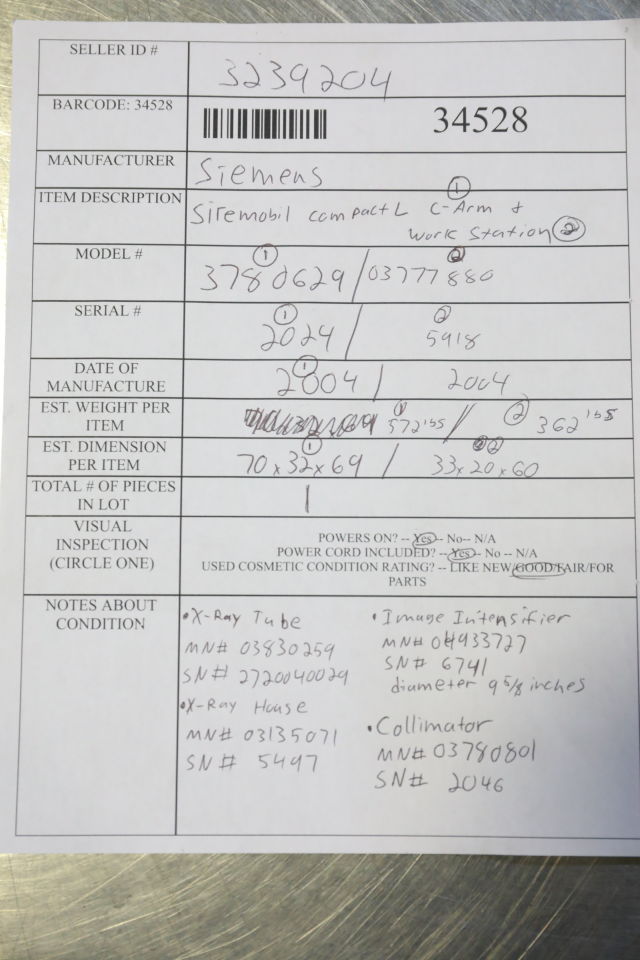 SELLER ID #
3239204
BARCODE: 34528
34528
MANUFACTURER
Siemens
ITEM DESCRIPTION
Siremobil compact L C-Arm & ①
Work Station ②
MODEL #
① ②
3780629 / 03777880
SERIAL #
① ②
2024 / 5918
DATE OF
MANUFACTURE
①
2004 / 2004
EST. WEIGHT PER
ITEM
① 572 lbs // ② 362 lbs
EST. DIMENSION
PER ITEM
① ②
70 x 32 x 69 / 33 x 20 x 60
TOTAL # OF PIECES
IN LOT
1
VISUAL
INSPECTION
(CIRCLE ONE)
POWERS ON? -- Yes -- No-- N/A
POWER CORD INCLUDED? -- Yes -- No -- N/A
USED COSMETIC CONDITION RATING? -- LIKE NEW/GOOD/FAIR/FOR
PARTS
NOTES ABOUT
CONDITION
• X-Ray Tube
MN# 03830259
SN# 2720040029
• X-Ray House
MN# 03135071
SN# 5497
• Image Intensifier
MN# 04933727
SN# 6741
diameter 9 5/8 inches
• Collimator
MN# 03780801
SN# 2046